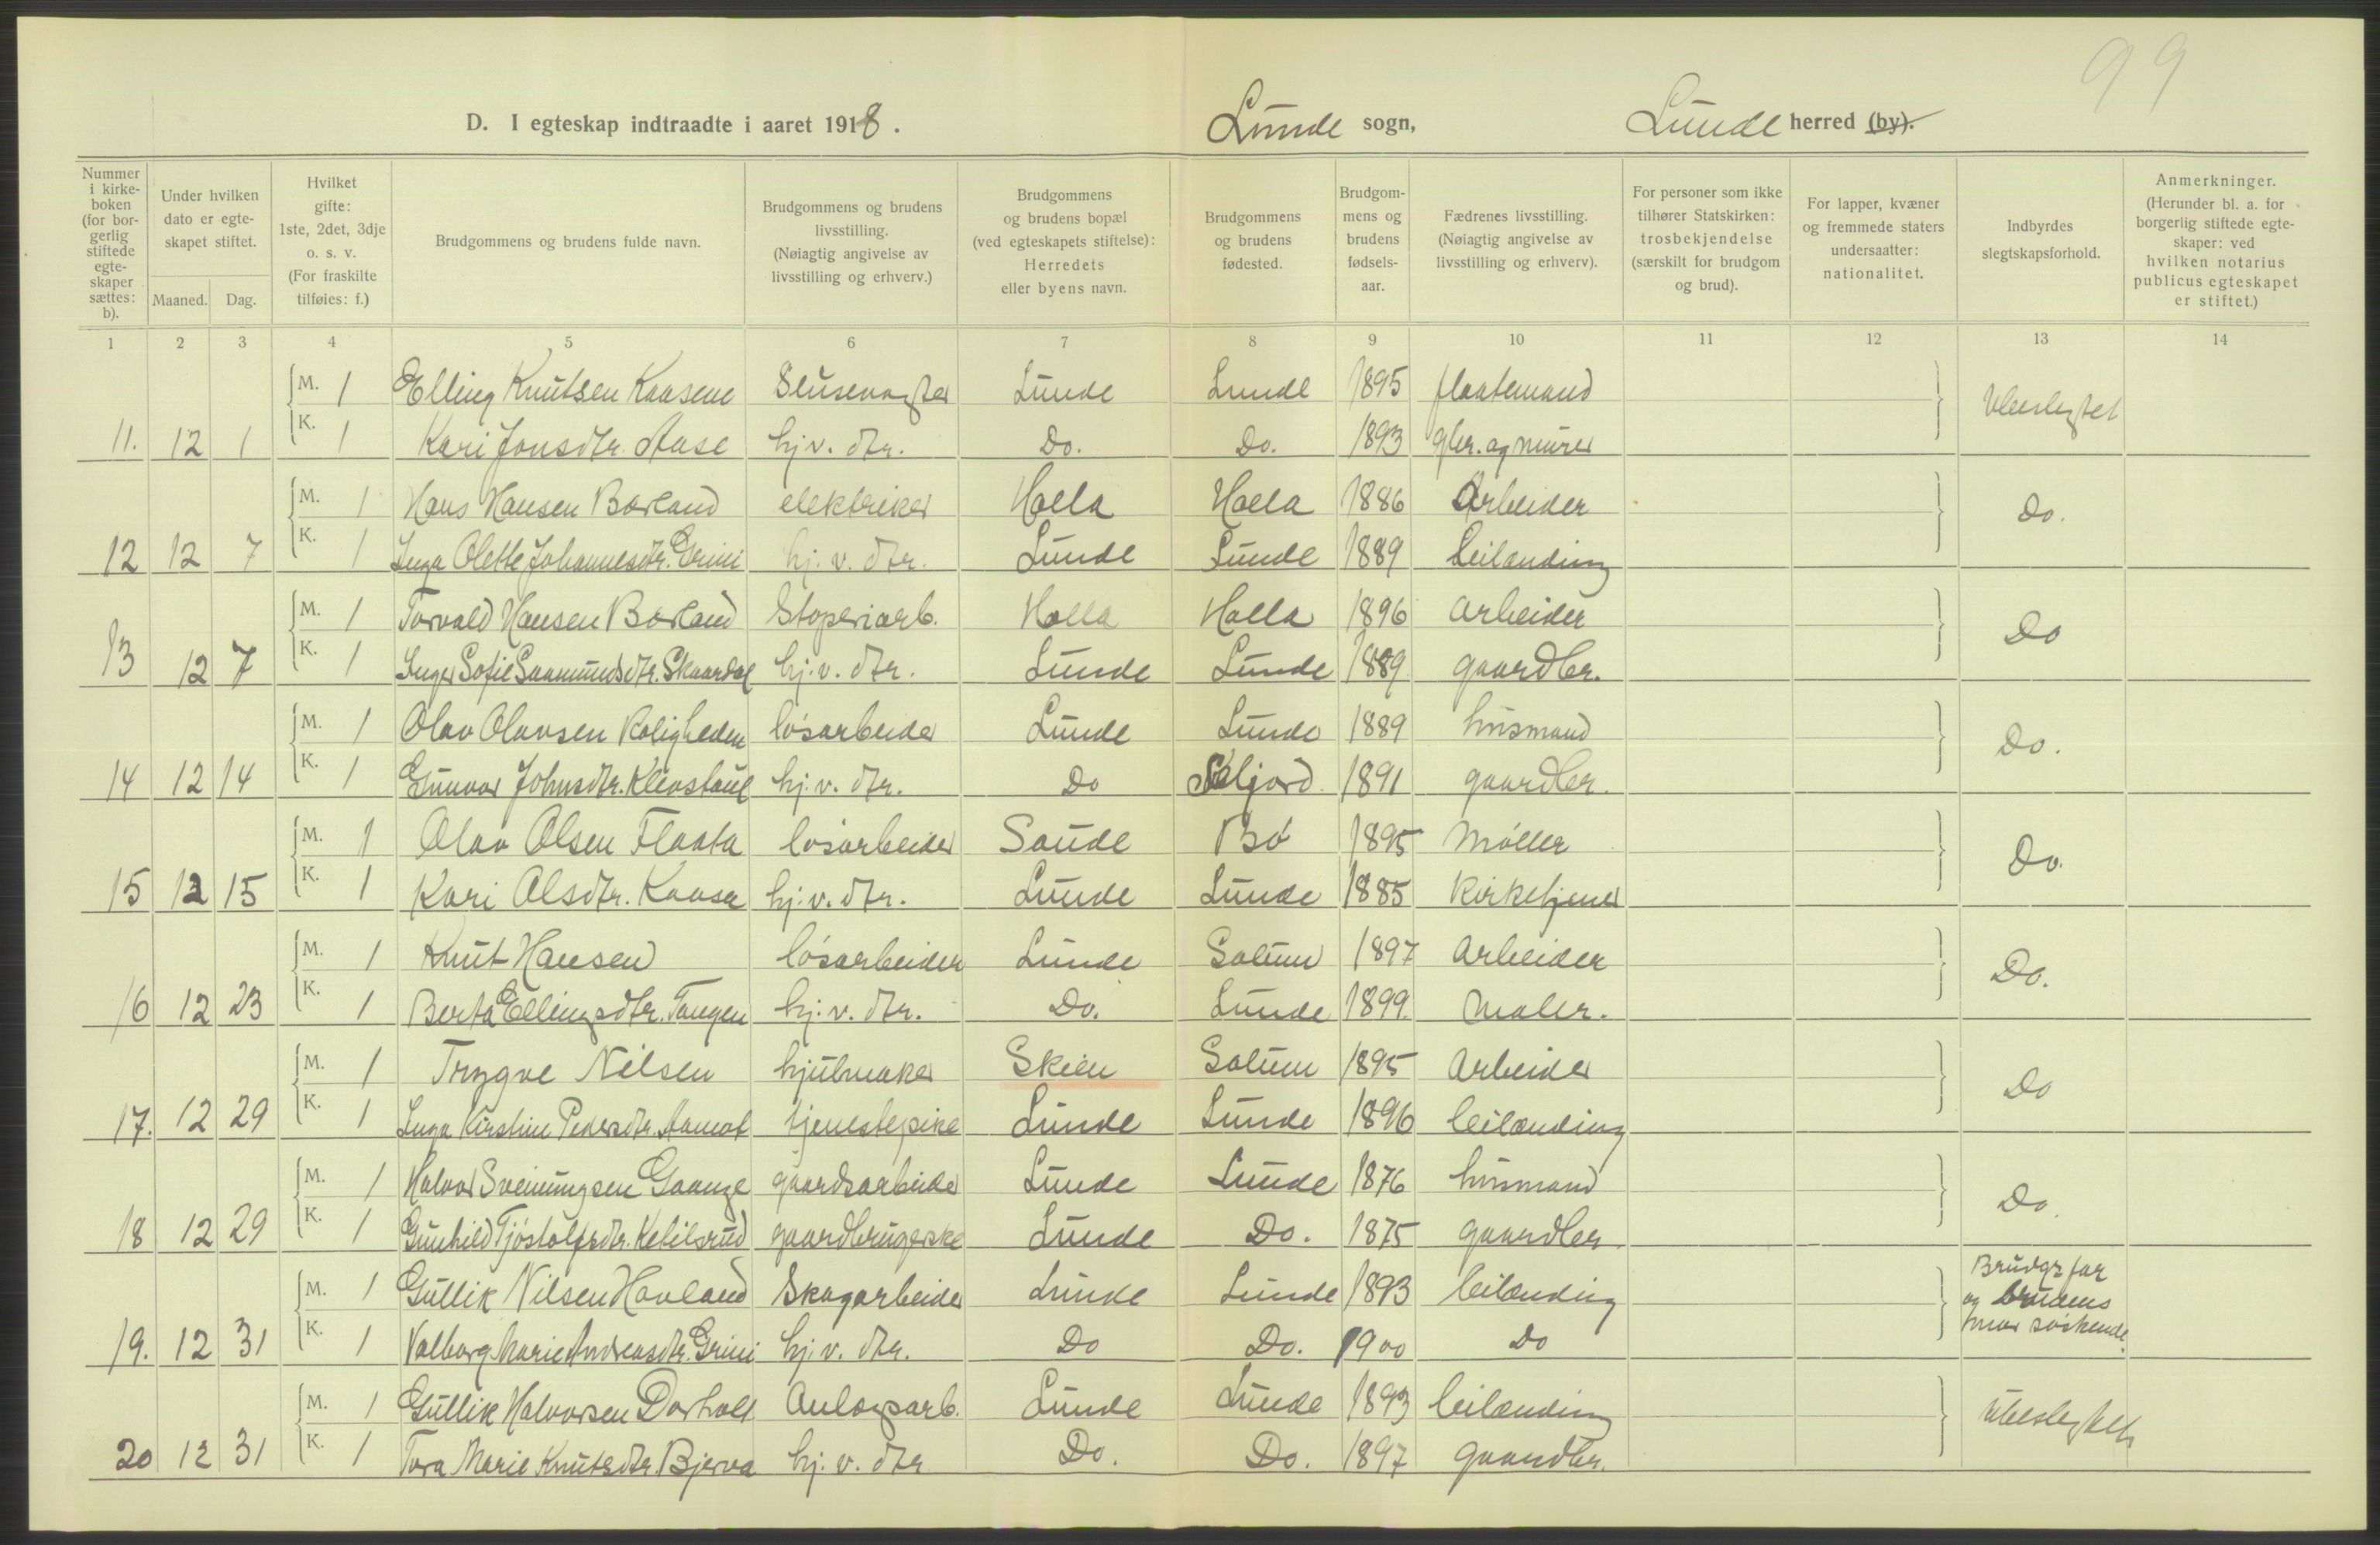 99
D. I egteskap indtraadte i aaret 1918. Lunde sogn, Lunde herred (by).
Nummer i kirkeboken (for borgerlig stiftede egteskaper sættes: b).
Under hvilken dato er egteskapet stiftet.
Maaned. Dag.
Hvilket gifte: 1ste, 2det, 3dje o. s. v. (For fraskilte tilføies: f.)
Brudgommens og brudens fulde navn.
Brudgommens og brudens livsstilling. (Nøiagtig angivelse av livsstilling og erhverv.)
Brudgommens og brudens bopæl (ved egteskapets stiftelse): Herredets eller byens navn.
Brudgommens og brudens fødested.
Brudgommens og brudens fødselsaar.
Fædrenes livsstilling. (Nøiagtig angivelse av livsstilling og erhverv).
For personer som ikke tilhører Statskirken: trosbekjendelse (særskilt for brudgom og brud).
For lapper, kvæner og fremmede staters undersaatter: nationalitet.
Indbyrdes slegtskapsforhold.
Anmerkninger. (Herunder bl. a. for borgerlig stiftede egteskaper: ved hvilken notarius publicus egteskapet er stiftet.)
1 2 3 4 5 6 7 8 9 10 11 12 13 14
M. 1 Elling Knutsen Kaasene Slusevogter Lunde Lunde 1895 fløatemand Ubeslegtet
11. 12 1 K. 1 Kari Jonsdtr. Aase hj v. dtr. Do. Do. 1893 gbr. og murer
M. 1 Hans Hansen Borland elektriker Holla Holla 1886 Arbeider Do.
12 12 7 K. 1 Inga Olette Johannesdtr. Grini hj. v. dtr. Lunde Lunde 1889 Leilænding
M. 1 Torvald Hansen Borland Støperiarb. Holla Holla 1896 arbeider Do
13 12 7 K. 1 Inger Sofie Saamundsdtr. Skaardal hj. v. dtr. Lunde Lunde 1889 gaardbr.
M. 1 Olav Olavsen Roligheden løsarbeider Lunde Lunde 1889 husmand Do.
14 12 14 K. 1 Gunvor Johnsdtr. Klevstaul hj. v. dtr. Do Seljord 1891 gaardbr.
M. 1 Olav Olsen Flaata løsarbeider Saude Bø 1895 Møller Do.
15 12 15 K. 1 Kari Olsdtr. Kaasa hj. v. dtr. Lunde Lunde 1885 Kirketjener
M. 1 Knut Hansen løsarbeider Lunde Solum 1897 arbeider Do.
16 12 23 K. 1 Berta Ellingsdtr. Tangen hj. v. dtr. Do. Lunde 1899 Maler.
M. 1 Trygve Nilsen hjulmaker Skien Solum 1895 Arbeider Do
17. 12 29 K. 1 Inga Kirstine Pedersdtr. Aamot tjenestepike Lunde Lunde 1896 leilænding
M. 1 Halvor Sveinungsen gaardsarbeider Lunde Lunde 1876 husmand Do.
18 12 29 K. 1 Gunhild Tjøstolfsdtr. Ketilsrud gaardbrugerske Lunde Do. 1875 gaardbr.
M. 1 Gullik Nilsen Hovland Skogarbeider Lunde Lunde 1893 leilænding Brudgs far
og brudens
19. 12 31 K. 1 Valborg Marie Andreasdtr. Grini hj. v. dtr. Do Do. 1900 Do mor søskende.
M. 1 Gullik Halvorsen Dorholt Anlægsarb. Lunde Lunde 1893 leilænding Ubeslegtet
20 12 31 K. 1 Tora Marie Knutsdtr. Bjerva hj. v. dtr Do. Do. 1897 gaardbr.